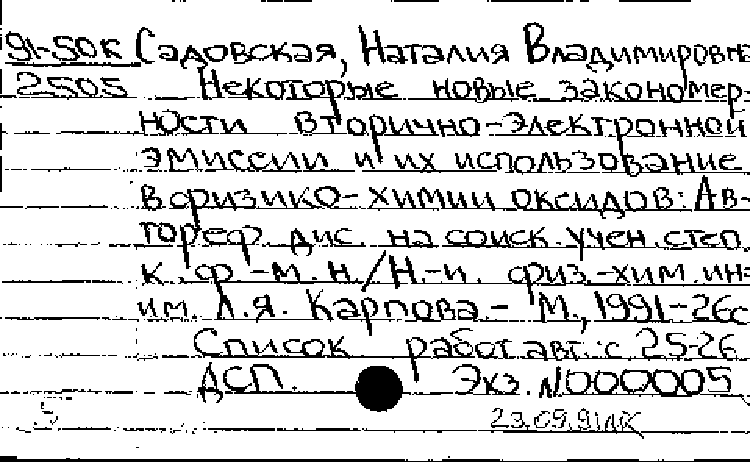 91-50к Садовская, Наталия Владимировна
2505 Некоторые новые закономер-
ности вторично-электронной
эмиссии и их использование
в физико-химии оксидов: Ав-
тореф. дис. на соиск. учен. степ.
к. ф.-м. н./Н.-и. физ.-хим. ин-
им. Л.Я. Карпова. - М., 1991-26с
Список работ авт.: с. 25-26
ДСП. Экз. N000005
23.09.91